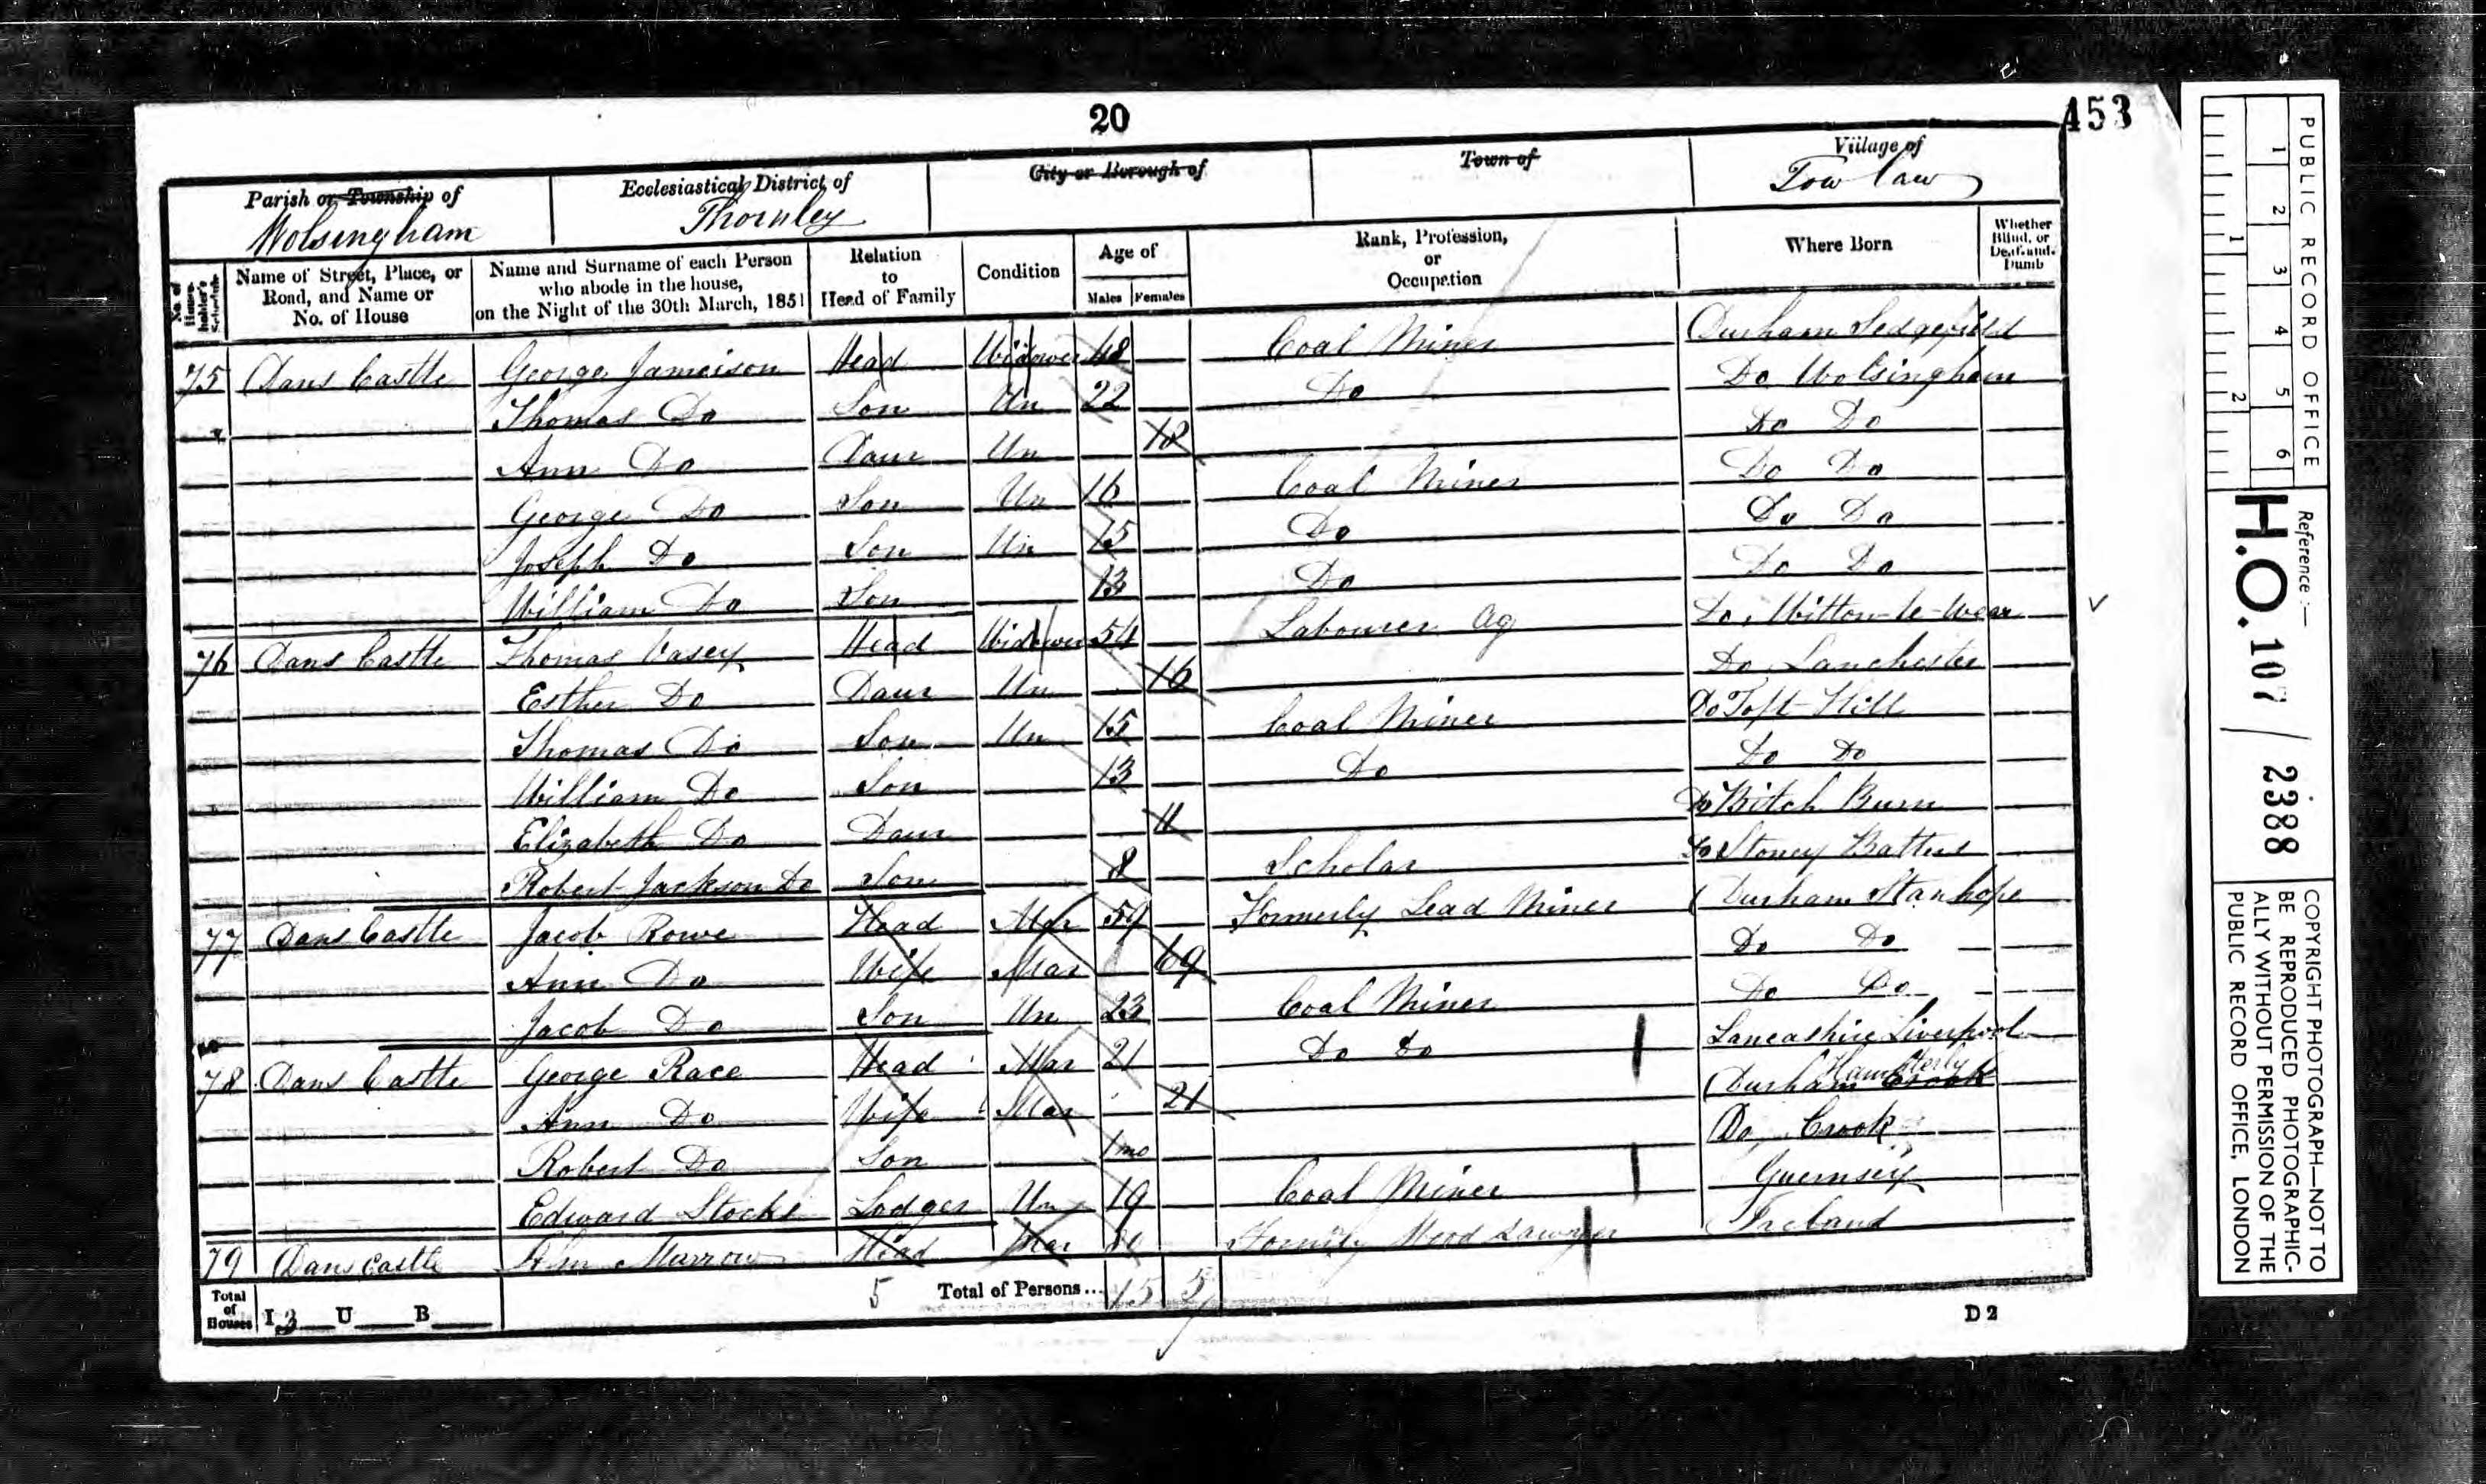 20
453
Parish or Township of
Wolsingham
Ecclesiastical District of
Thornley
City or Borough of
Town of
Village of
Tow Law
No. of House-holder's Schedule
Name of Street, Place, or Road, and Name or No. of House
Name and Surname of each Person who abode in the house, on the Night of the 30th March, 1851
Relation to Head of Family
Condition
Age of
Males Females
Rank, Profession, or Occupation
Where Born
Whether Blind, or Deaf-and-Dumb
75 Dans Castle George Jameison Head Widower 48 Coal Miner Durham Sedgefield
Thomas Do Son Un 22 Do Do Wolsingham
Ann Do Daur Un 18 Do Do
George Do Son Un 16 Coal Miner Do Do
Joseph Do Son Un 15 Do Do Do
William Do Son 13 Do Do Do
76 Dans Castle Thomas Vasey Head Widower 54 Labourer Ag Do Witton-le-Wear
Esther Do Daur Un 16 Do Lanchester
Thomas Do Son Un 15 Coal Miner Do Toft Hill
William Do Son 13 Do Do Do
Elizabeth Do Daur 11 Do Bitch Burn
Robert Jackson Do Son 8 Scholar Do Stoney Batter
77 Dans Castle Jacob Rowe Head Mar 59 Formerly Lead Miner Durham Stanhope
Ann Do Wife Mar 69 Do Do
Jacob Do Son Un 23 Coal Miner Do Do
78 Dans Castle George Race Head Mar 21 Do Do Lancashire Liverpool
Ann Do Wife Mar 21 Durham Crook Hamsterly
Robert Do Son 1mo Do Crook
Edward Stocks Lodger Un 19 Coal Miner Guernsey
79 Dans Castle Marrow Head Mar Wood Sawyer Ireland
Total of Houses I 3 U B
5 Total of Persons... 15 5
D 2
PUBLIC RECORD OFFICE
1 2 3 4 5 6
1 2
Reference :—
H.O. 107 / 2388
COPYRIGHT PHOTOGRAPH—NOT TO
BE REPRODUCED PHOTOGRAPHIC-
ALLY WITHOUT PERMISSION OF THE
PUBLIC RECORD OFFICE, LONDON